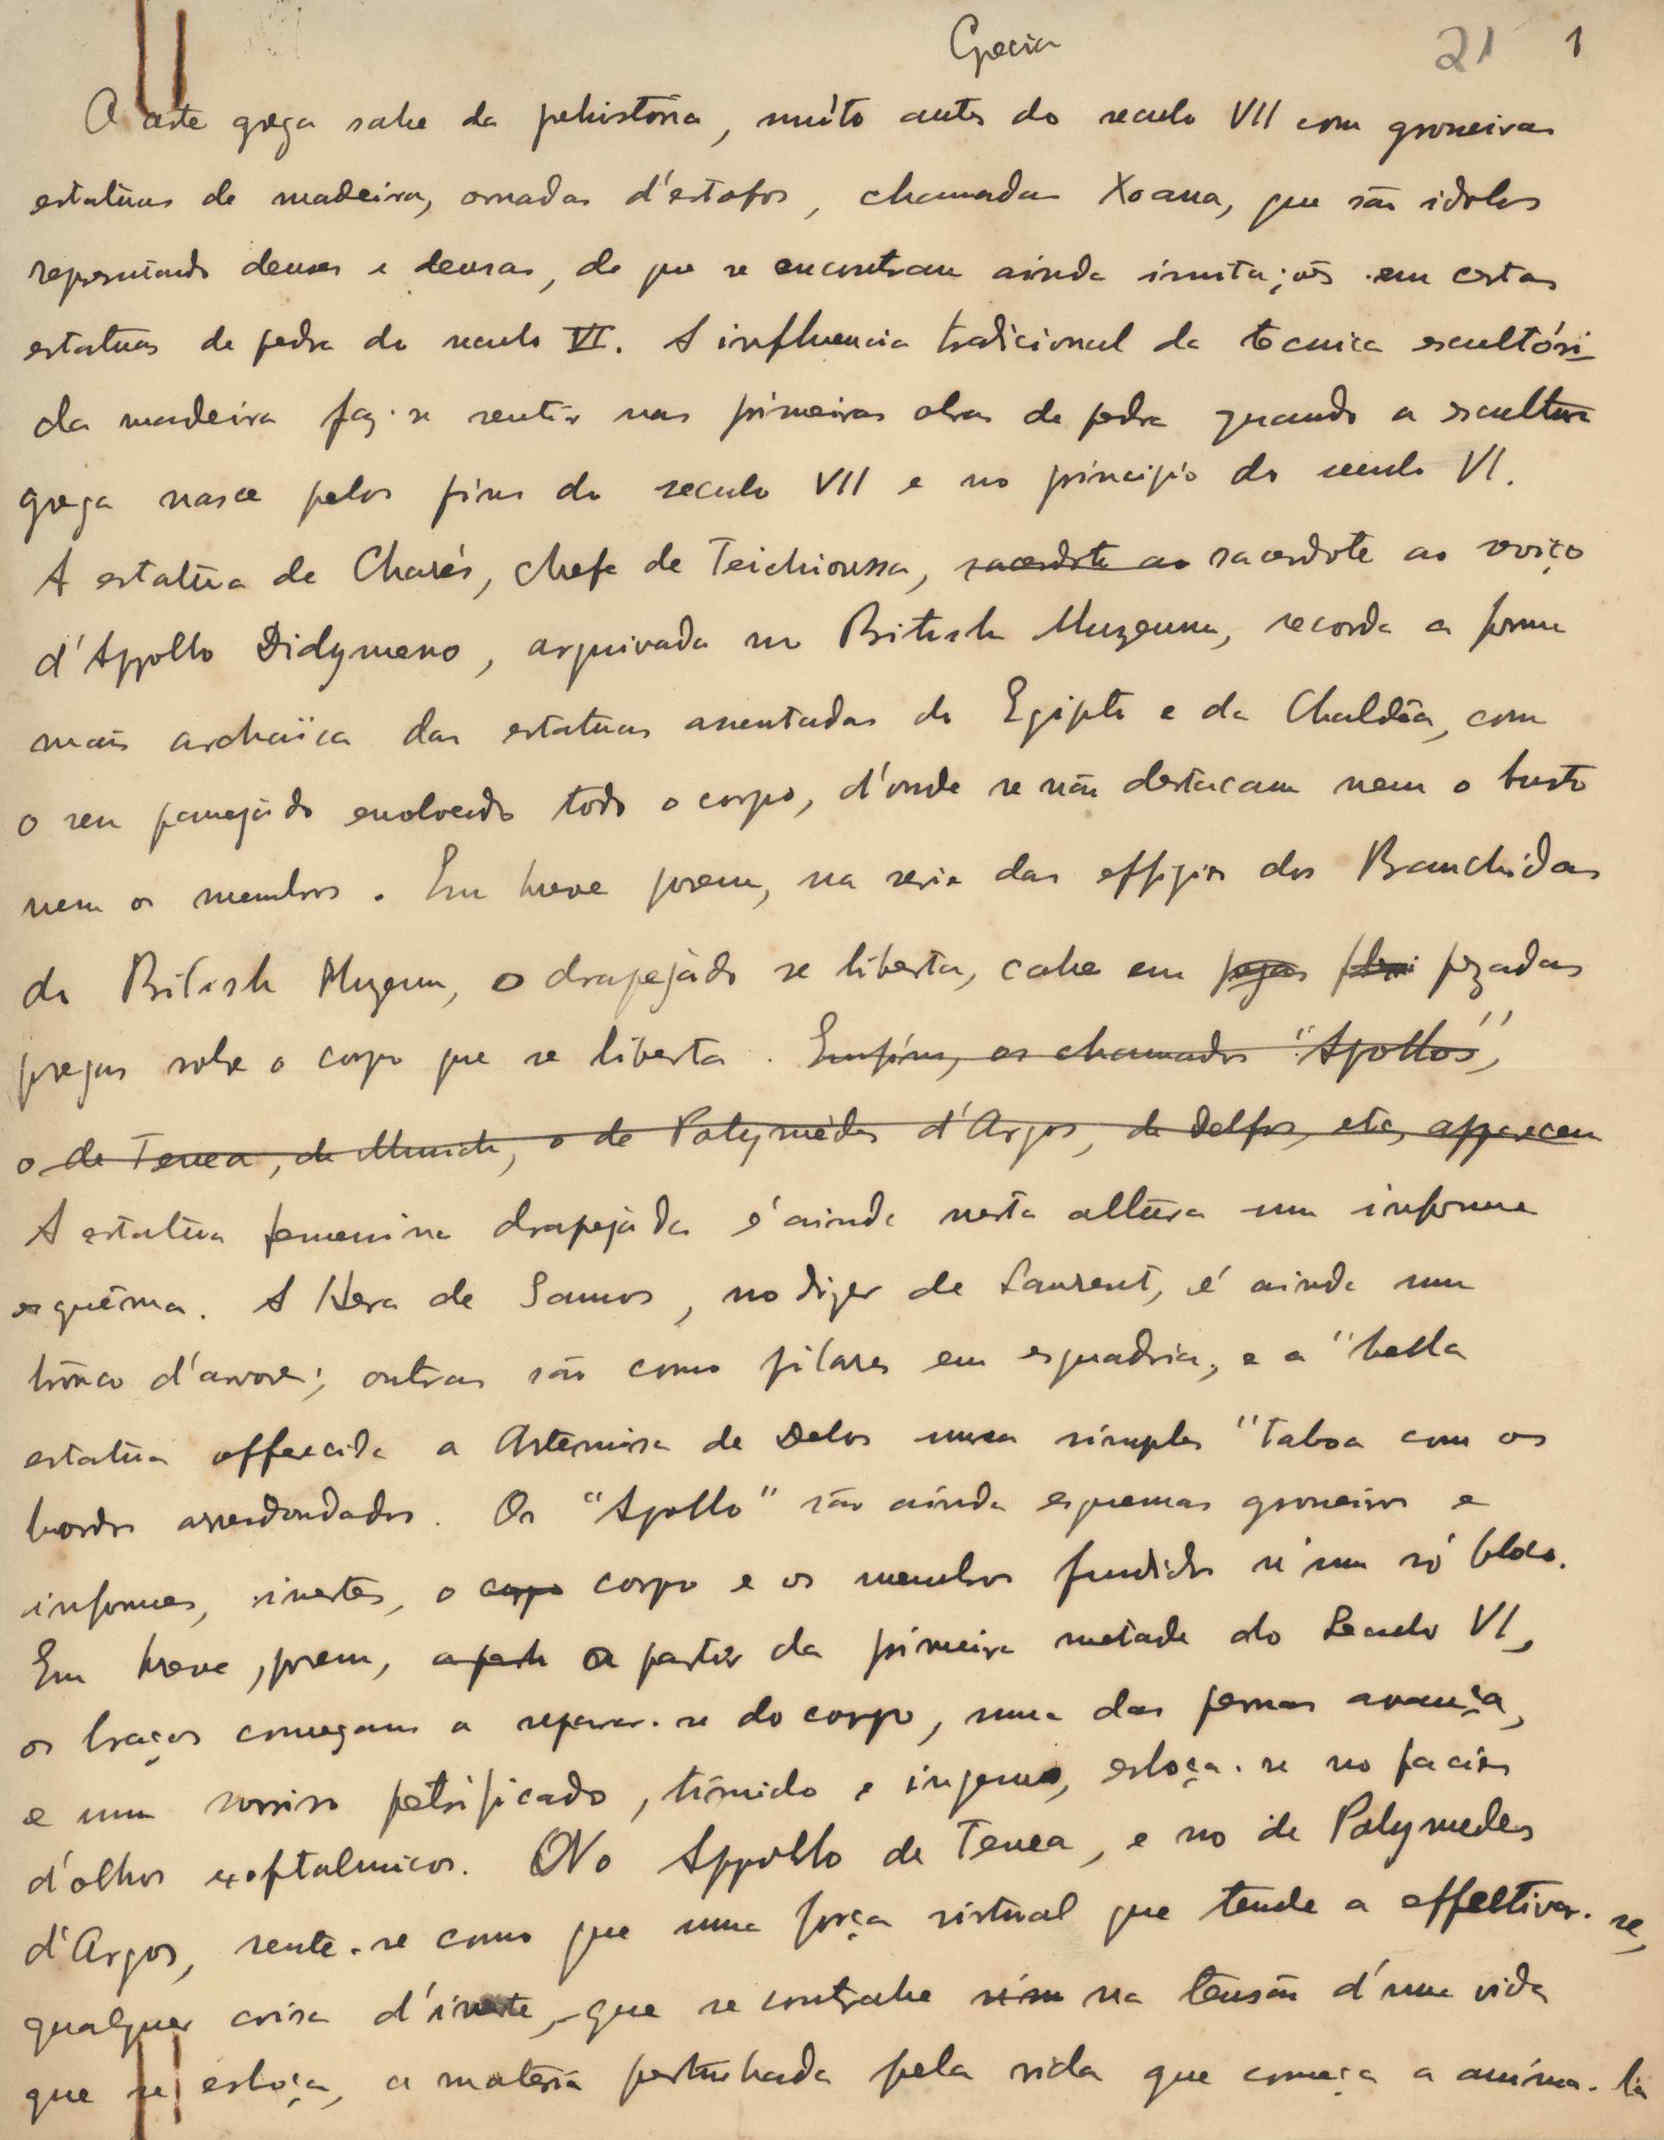 Grecia
21 1
A arte grega sahe da prehistoria, muito antes do seculo VII com grosseiras
estatuas de madeira, ornadas d'estofos, chamadas Xoana, que são idolos
representando deuses e deusas, de que se encontram ainda imitações em certas
estatuas de pedra do seculo VI. A influencia tradicional da tecnica escultóri
da madeira faz-se sentir nas primeiras obras de pedra quando a escultura
grega nasce pelos fins do seculo VII e no principio do seculo VI.
A estatua de Charés, chefe de Teichioussa, sacerdote ao sacerdote ao serviço
d'Appollo Didymeno, arquivada no British Muzeum, recorda a forma
mais archaïca das estatuas assentadas do Egipto e da Chaldêa, com
o seu panejádo envolvendo todo o corpo, d'onde se não destacam nem o busto
nem os membros. Em breve porem, na serie das effigies dos Branchidas
do British Muzeum, o drapejádo se liberta, cahe em pregas pezadas
pregas sobre o corpo que se liberta. Emfim, os chamados "Apollos",
o de Tenea, de Munich, o de Polymédes d'Argos, de Delfos, etc, apparecem
A estatua femenina drapejáda é ainda nesta altura um informe
esquêma. A Hera de Samos, no dizer de Laurent, é ainda um
trônco d'arvore; outras são como pilares em esquadria, e a "bella
estatua offerecida a Artemisa de Delos uma simples "Taboa com os
bordos arredondados. Os "Apollo" são ainda esquemas grosseiros e
informes, inertes, o corpo corpo e os membros fundidos n'um só bloco.
Em breve, porem, a parti a partir da primeira metade do Seculo VI,
os braços começam a separar-se do corpo, uma das pernas avança,
e um sorriso petrificado, timido e ingenuo, esboça-se no facies
d'olhos exoftalmicos. No Appollo de Tenea, e no de Polymedes
d'Argos, sente-se como que uma força virtual que tende a effectivar-se,
qualquer coisa d'inerte, que se contrahe n'um na tensão d'uma vida
que se esboça, a materia perturbada pela vida que começa a anima-la